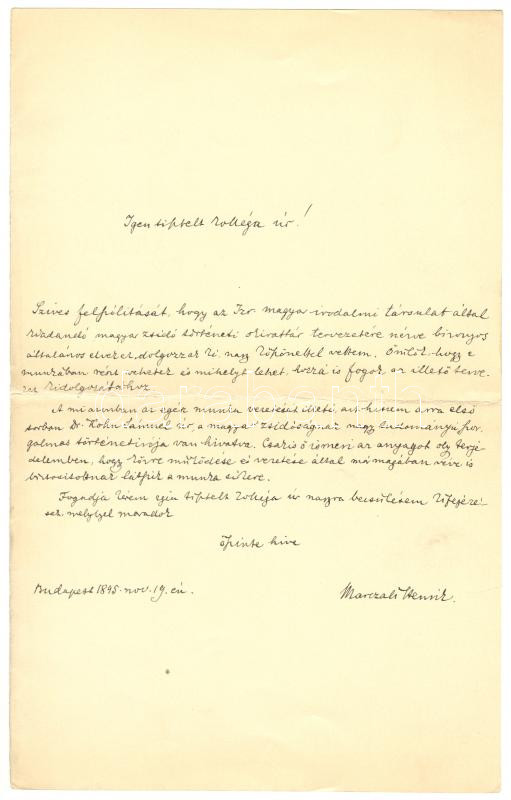 Igen tisztelt kolléga úr!
Szíves felszólítását, hogy az Izr. magyar irodalmi társulat által
kiadandó magyar zsidó történeti okirattár tervezetére nézve bizonyos
általános elveket dolgozzak ki, nagy köszönettel vettem. Örülök, hogy e
munkában részt vehetek és mihelyt lehet, hozzá is fogok az illető terve-
zet kidolgozásához.
A mi azonban az egész munka vezetését illeti, azt hiszem arra első
sorban Dr. Kohn Sámuel úr, a magyar zsidóság nagy tudományú, szor-
galmas történetírója van hivatva. Csakis ő ismeri az anyagot oly terje-
delemben, hogy közre működése és vezetése által már magában véve is
biztosítottnak látszik a munka sikere.
Fogadja kérem igen tisztelt kolléga úr nagyra becsülésem kifejezé-
sét, melylyel maradok
őszinte híve
Budapest 1895. nov. 19. én.
Marczali Henrik.